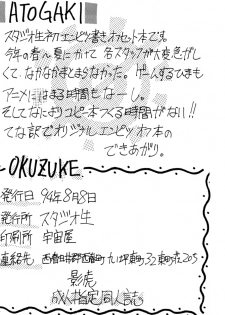 ATOGAKI
スタジオ生初エンピツ書きオフセット本です。
今年の春〜夏にかけて各スタッフが大変急がし
くて、なかなかまとまらなかった。ゲームするひまも
アニメにはまる時間もなーし。
そしてなによりコピー本つくる時間がない!!
てな訳でオリジナルエンピツ本の
できあがり。
OKUZUKE.
発行日 94年8月8日
発行所 スタジオ生
印刷所 宇宙屋
連絡先
影虎
成人指定同人誌